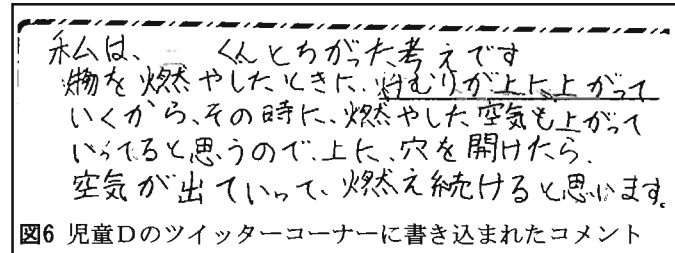 私は、　　くんとちがった考えです
物を燃やしたときに、けむりが上に上がって
いくから、その時に、燃やした空気も上がって
いってると思うので、上に、穴を開けたら、
空気が出ていって、燃え続けると思います。
図6 児童Dのツイッターコーナーに書き込まれたコメント